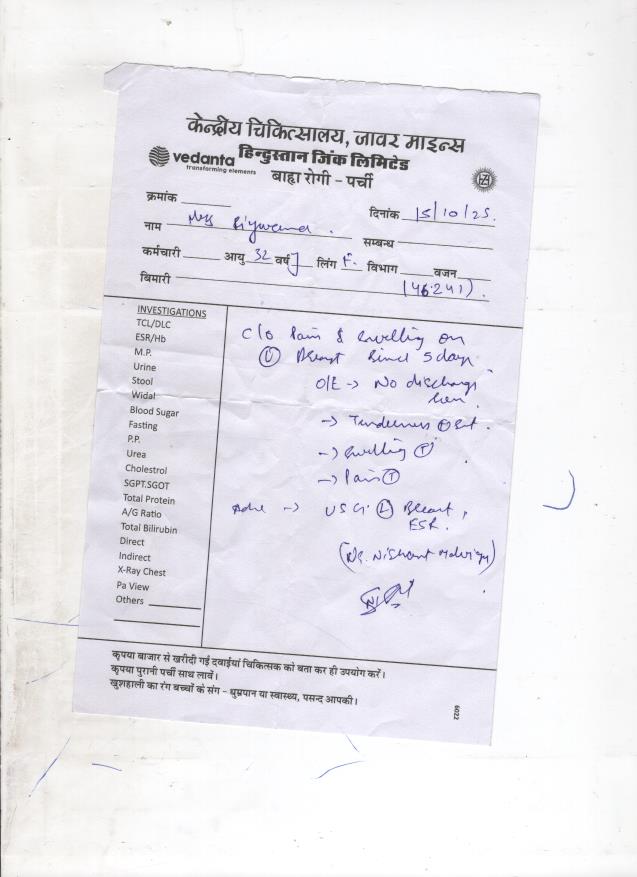 केन्द्रीय चिकित्सालय, जावर माइन्स
vedanta हिन्दुस्तान जिंक लिमिटेड
transforming elements
बाह्य रोगी - पर्ची
क्रमांक
दिनांक 15/10/25.
नाम
सम्बन्ध
कर्मचारी आयु 32 वर्ष लिंग F. विभाग वजन
बिमारी (46241).
INVESTIGATIONS
TCL/DLC
ESR/Hb
M.P.
Urine
Stool
Widal
Blood Sugar
Fasting
P.P.
Urea
Cholestrol
SGPT.SGOT
Total Protein
A/G Ratio
Total Bilirubin
Direct
Indirect
X-Ray Chest
Pa View
Others
C/o Pain & Swelling on
Breast Since 5 days
O/E → No discharge
→ Tenderness
→ Swelling
→ Pain
Adv → USG (L) Breast,
ESR.
(Dr. Nishant
कृपया बाजार से खरीदी गई दवाईयां चिकित्सक को बता कर ही उपयोग करें।
कृपया पुरानी पर्ची साथ लावें।
खुशहाली का रंग बच्चों के संग - धुम्रपान या स्वास्थ्य, पसन्द आपकी।
6022